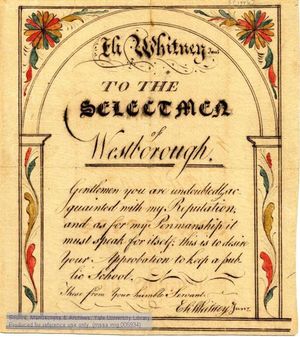 Eli Whitney Junr
TO THE
SELECTMEN
of
Westborough.
Gentlemen you are undoubtedly ac
quainted with my Reputation,
and as for my Penmanship it
must speak for itself; this is to desire
Your Approbation to keep a pub
lic School.
These from Your humble Servant.
Eli Whitney Junr.
Source: Manuscripts & Archives, Yale University Library
Reproduced for reference use only. (mssa.msg.005934)